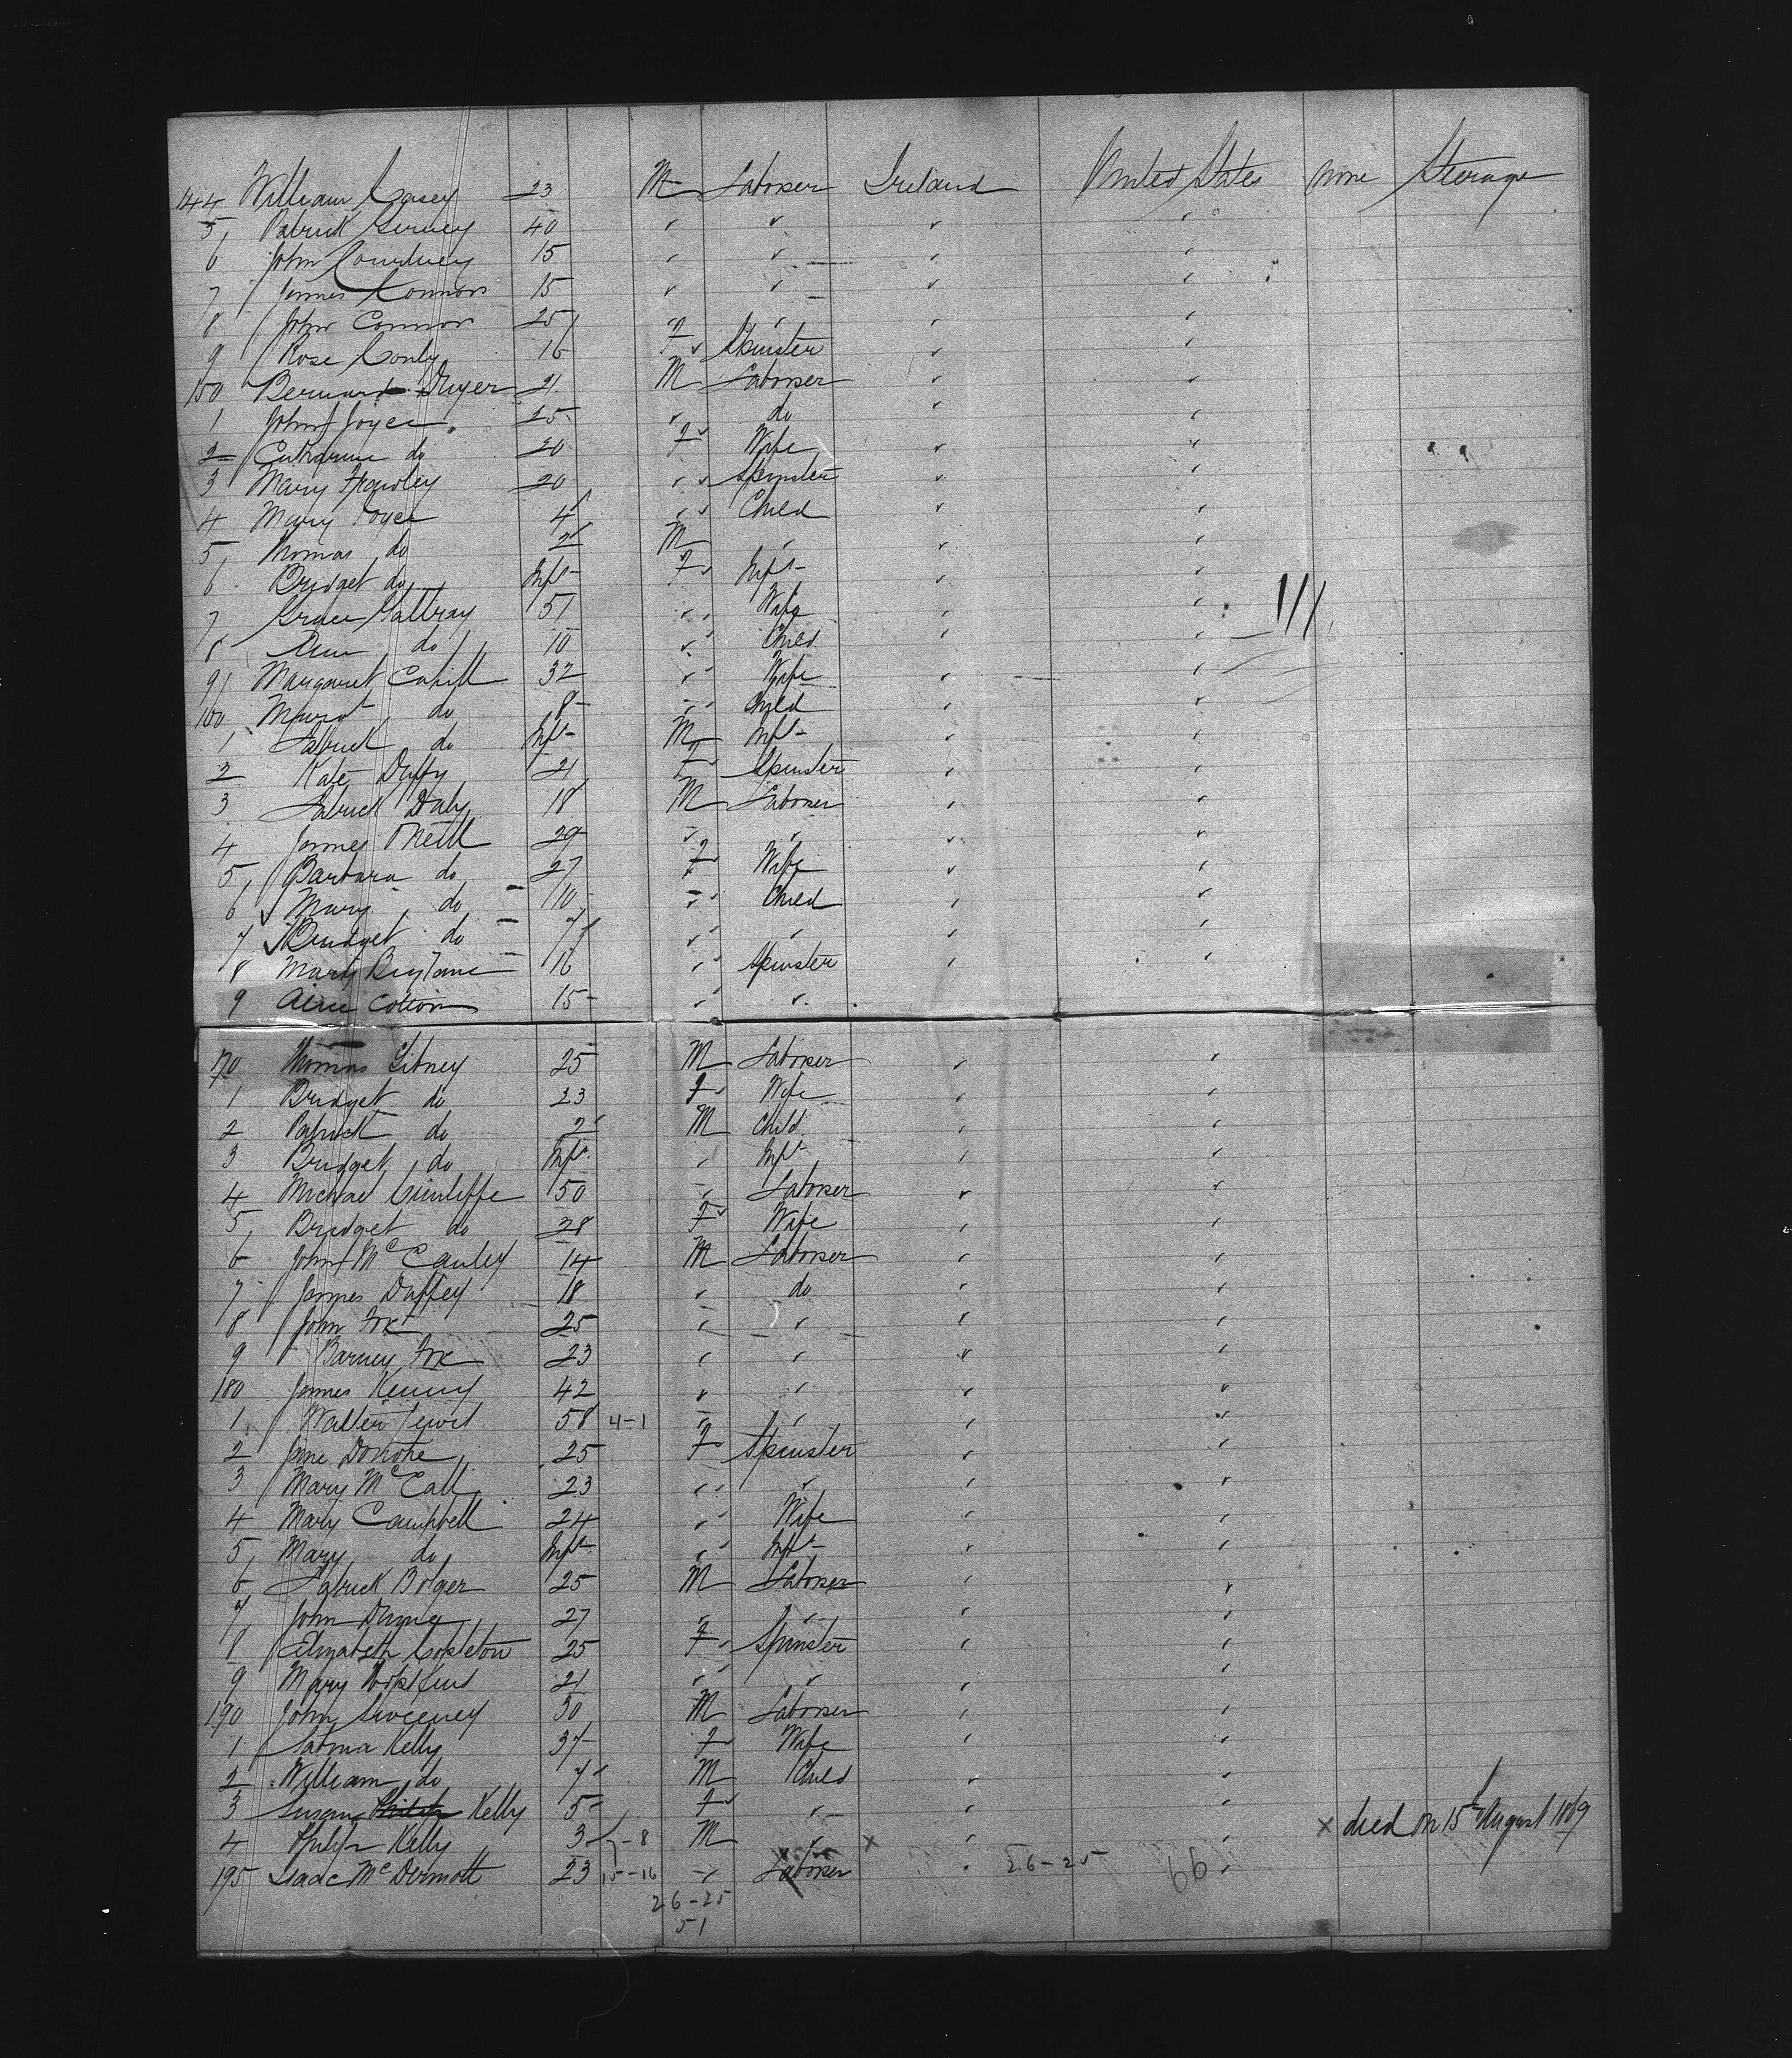 144 William Casey 23 M Laborer Ireland United States None Sterage
5 Patrick 40 " " " "
6 John Courtney 15 " " " "
7 James Connors 15 " " " "
8 John Connor 25 " " " "
9 Rose Conly 16 F Spinster " "
150 Bernard Dwyer 21 M Laborer " "
1 John Joyce 25 " do " "
2 Catharine do 20 F Wife " "
3 Mary Frawley 20 " Spinster " "
4 Mary Joyce 4 " Child " "
5 Thomas do 2 M " " "
6 Bridget do Inft F Inft " "
7 Grace 51 " Wife " "
8 Ann do 10 " Child " "
9 Margaret Cahill 32 " Wife " "
160 Margt do 8 " Child " "
1 Patrick do Inft M Inft " "
2 Kate Duffy 21 F Spinster " "
3 Patrick Daly 18 M Laborer " "
4 James ONeill 29 " " " "
5 Barbara do 27 F Wife " "
6 Mary do 10 " Child " "
7 Bridget do 7 " " " "
8 Mary 16 " Spinster " "
9 Cotton 15 " "
170 Thomas Gibney 25 M Laborer " "
1 Bridget do 23 F Wife " "
2 Patrick do 2 M Child " "
3 Bridget do Inft " Inft " "
4 Michael Cunliffe 50 " Laborer " "
5 Bridget do 28 F Wife " "
6 John McCauley 14 M Laborer " "
7 James Duffey 18 " do " "
8 John Fox 25 " " " "
9 Barney Fox 23 " " " "
180 James Kenny 42 " " " "
1 Walter 58 4-1 " " " "
2 Jane Donohe 25 F Spinster " "
3 Mary McCall 23 " " " "
4 Mary Campbell 24 " Wife " "
5 Mary do Inft " Inft " "
6 Patrick Bolger 25 M Laborer " "
7 John 27 " " " "
8 Elizabeth Copleton 25 F Spinster " "
9 Mary Hopkins 21 " " " "
190 John Sweeney 30 M Laborer " "
1 Kelly 37 F Wife " "
2 William do 7 M Child " "
3 Susan Philip Kelly 5 F " " "
4 Philip Kelly 3 7-8 M " x " " x died on 15th August 1869
195 Isaac McDermott 23 15-16 " Laborer " 26-25 66 "
26-25
51